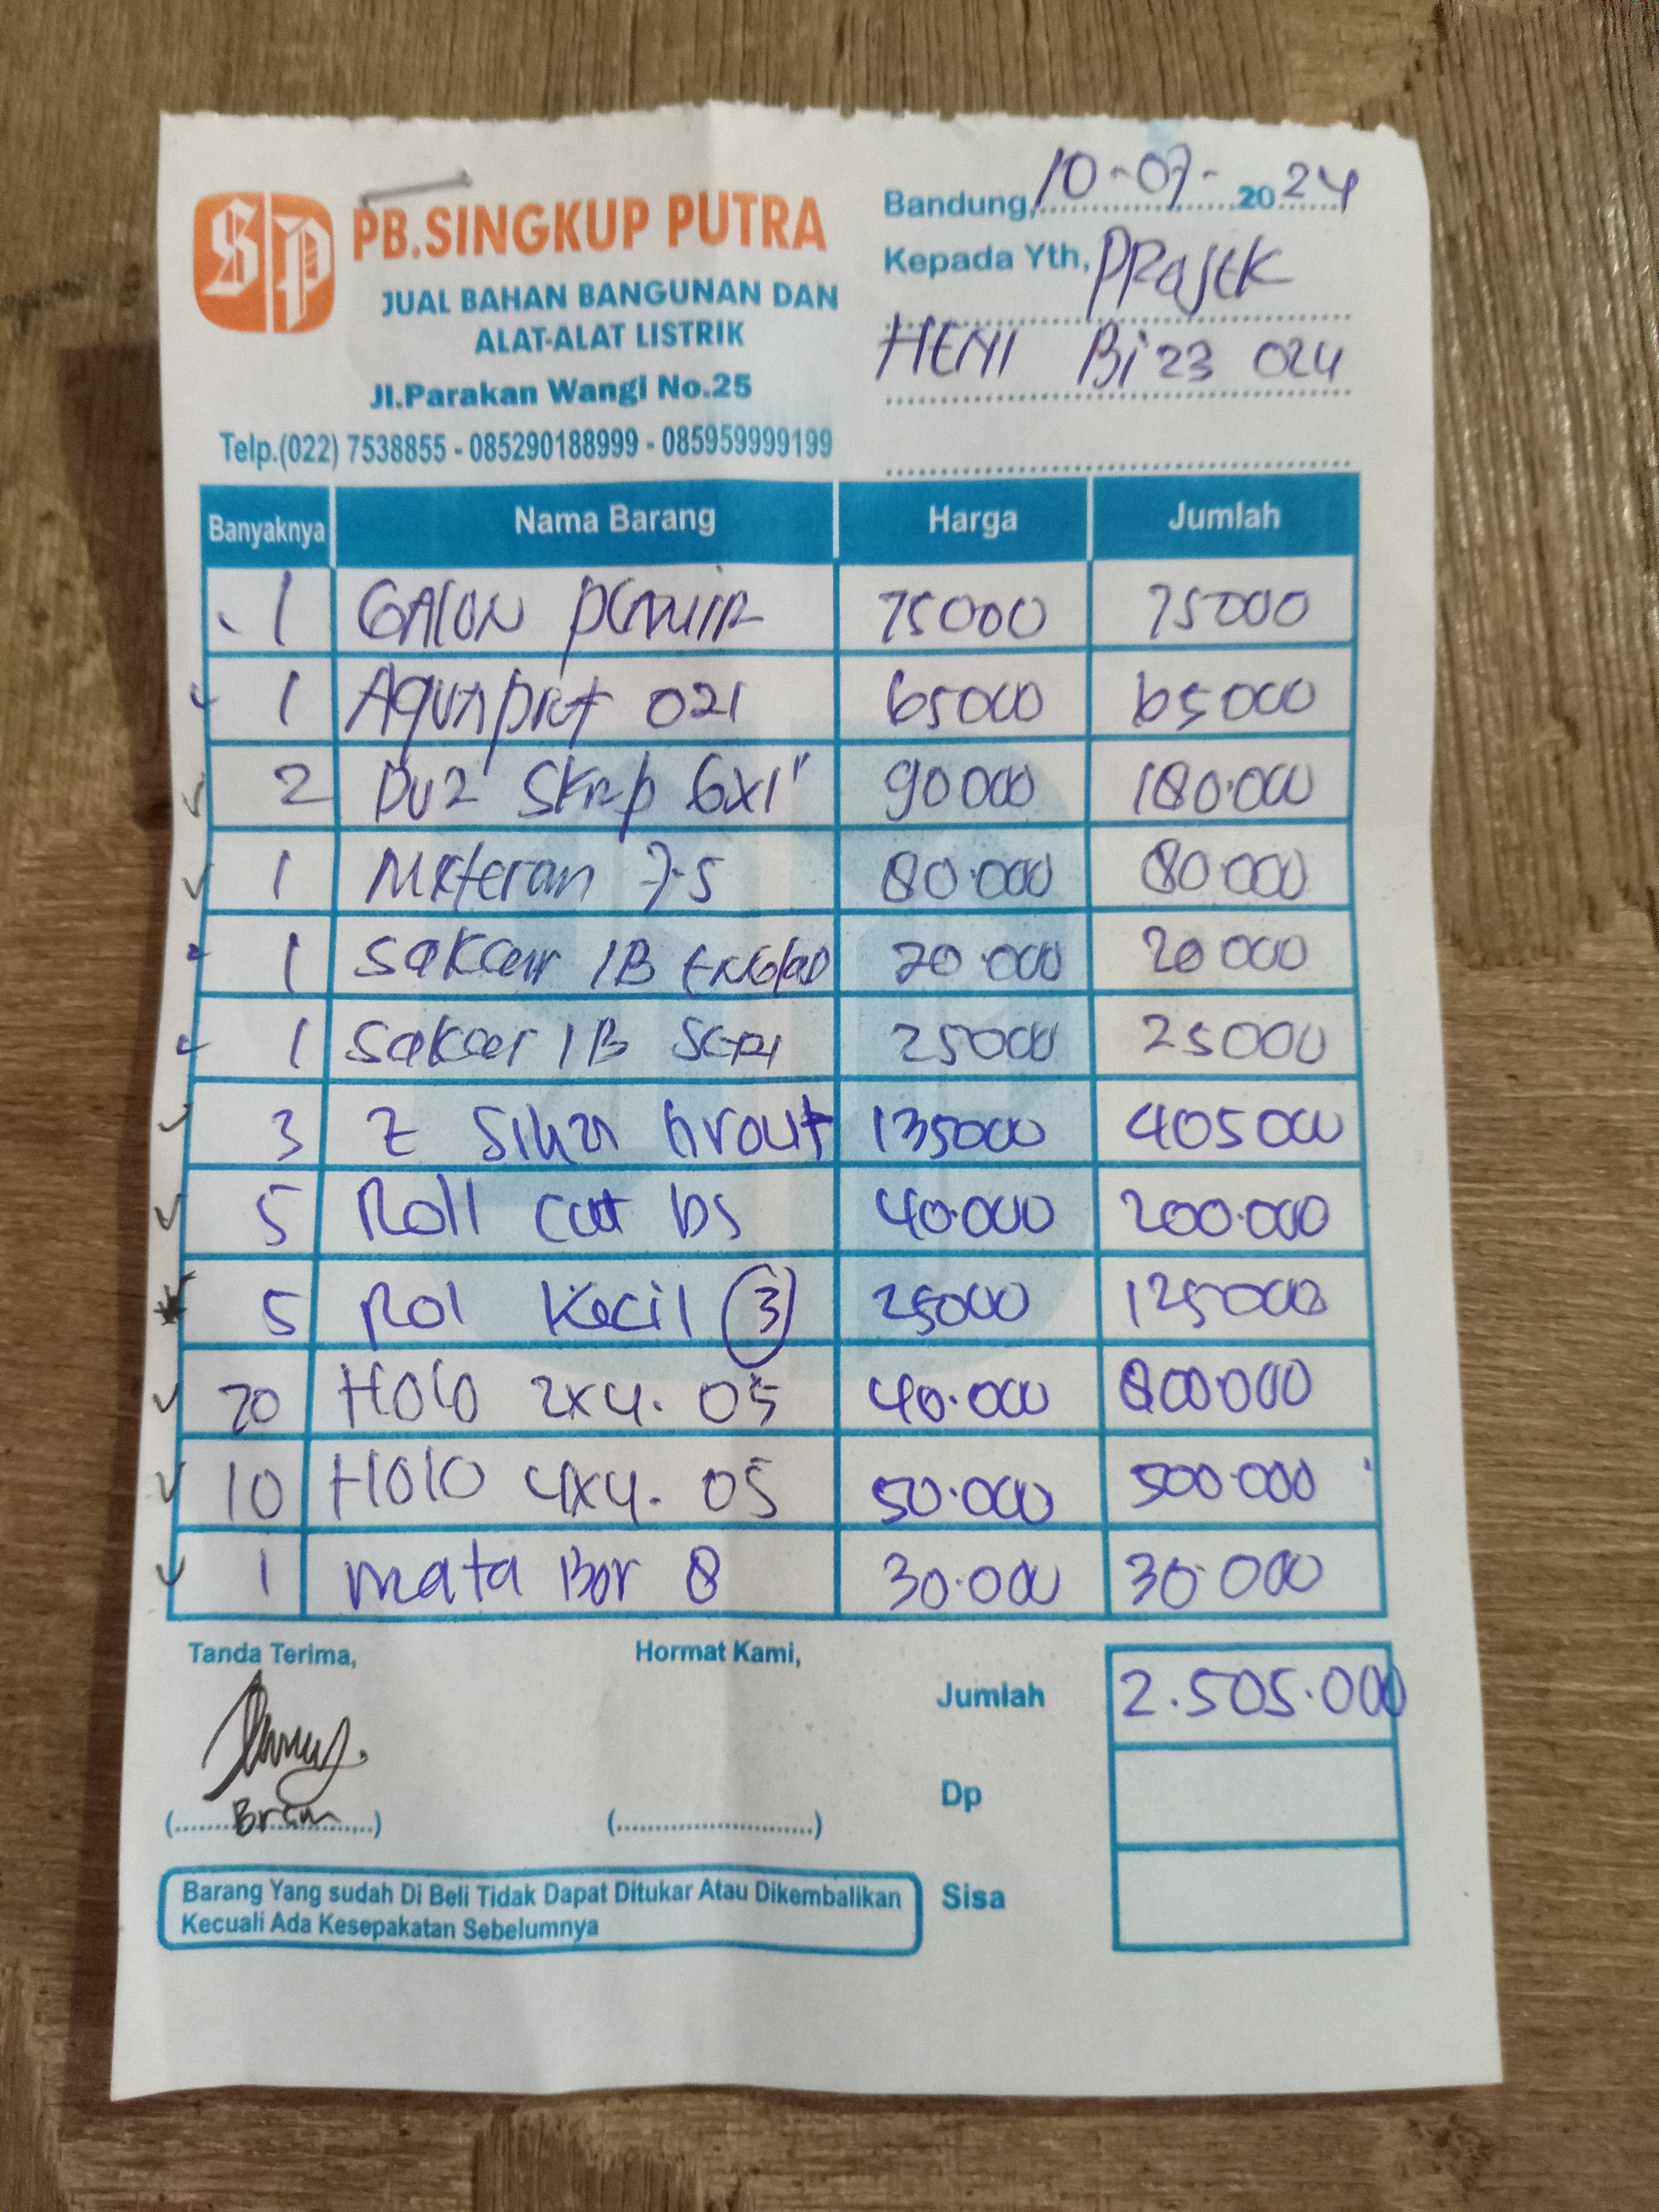 SP
PB.SINGKUP PUTRA
JUAL BAHAN BANGUNAN DAN
ALAT-ALAT LISTRIK
Jl.Parakan Wangi No.25
Telp.(022) 7538855 - 085290188999 - 085959999199
Bandung, 10-07- 2024
Kepada Yth,
HENI Bi 23 024
Banyaknya Nama Barang Harga Jumlah
1 GALON 75000 75000
1 Aquaprof 021 65000 65000
2 6x1" 90000 180.000
1 Meteran 7.5 80.000 80.000
1 1B 20.000 20000
1 1B 25000 25000
3 Z Grout 135000 405000
5 Roll Cat bs 40.000 200.000
5 Rol Kecil 3 25000 125000
20 Holo 2x4. 05 40.000 800000
10 Holo 4x4. 05 50.000 500.000
1 mata Bor 8 30.000 30.000
Tanda Terima, Hormat Kami,
Jumlah 2.505.000
Dp
(..........) (..........)
Sisa
Barang Yang sudah Di Beli Tidak Dapat Ditukar Atau Dikembalikan
Kecuali Ada Kesepakatan Sebelumnya